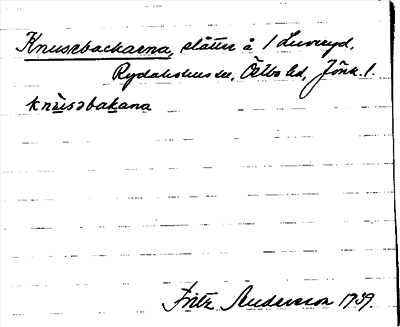 Knusebackarna, slätter å 1 Luveryd,
Rydaholms sn, Östbo hd, Jönk. l.
knùsəbakana
Fritz Andersson 1939.